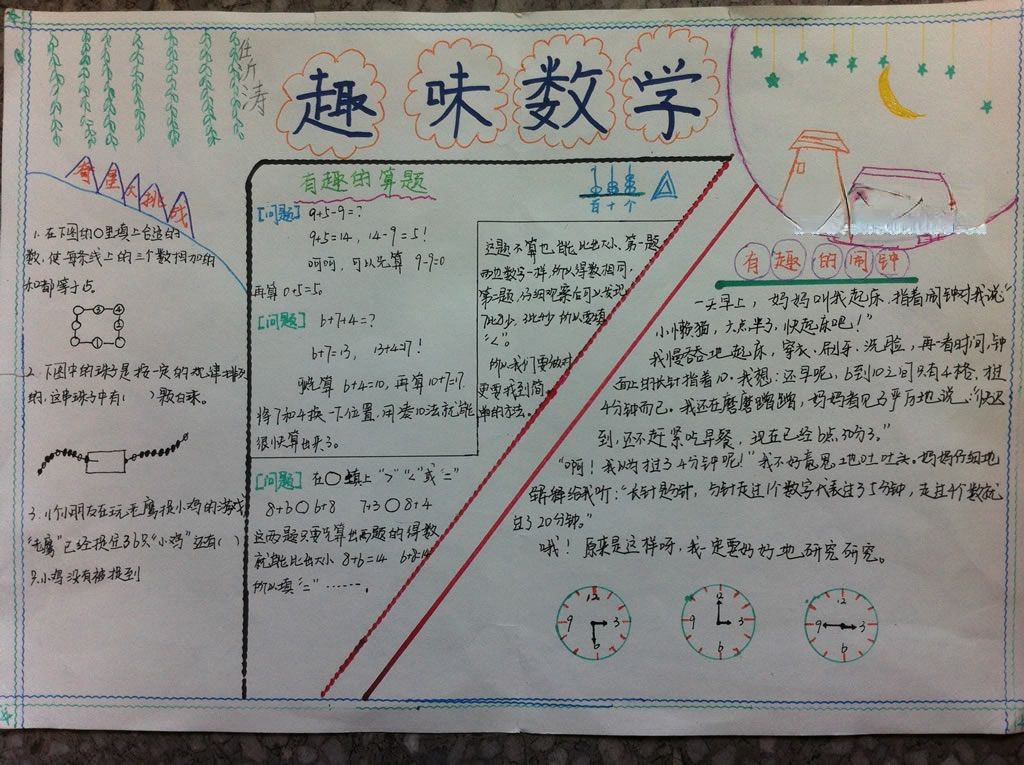 趣味数学
涛
智星大挑战
1. 在下图的○里填上合适的
数,使每条线上的三个数相加的
和都等于
2. 下图中的珠子是按一定的规律排列
的,这串珠子中有( )颗白珠。
3. 小朋友在玩老鹰捉小鸡的游戏
"老鹰"已经捉住36只"小鸡"还有( )
只小鸡没有被捉到
有趣的算题
[问题] 9+5-9=?
9+5=14, 14-9=5!
呵呵,可以先算 9-9=0
再算 0+5=5。
[问题] 6+7+4=?
6+7=13, 13+4=17!
先算 6+4=10,再算10+7=17.
将7和4换一下位置,用凑10法就能
很快算出来了。
[问题] 在○填上">""<"或"="
8+6○6+8 7+3○8+4
这两题只要先算出两题的得数
就能比出大小 8+6=14 6+8=14
所以填"="……,
百十个
这题不算也能比出大小,第一题
两边数字一样,所以得数相同,
第二题,仔细观察后可以发现
7比8少,3比4少 所以要填
"<"。
所以我们要做对
更要找到简
单的方法。
有趣的闹钟
一天早上,妈妈叫我起床,指着闹钟对我说"
小懒猫,六点半了,快起床吧!"
我慢吞吞地起床,穿衣、刷牙、洗脸,再一看时间,钟
面上的长针指着10。我想:还早呢,6到10之间只有4格,才过
4分钟而已。我还在磨磨蹭蹭,妈妈看见了严厉地说:"
到,还不赶紧吃早餐,现在已经6点50分了。"
"啊!我以为才过了4分钟呢!"我不好意思地吐吐舌。妈妈仔细地
解释给我听:"长针是分针,分针走过1个数字代表过了5分钟,走过4个数就
过了20分钟。"
哦!原来是这样呀,我一定要好好地研究研究。
12 3 6 9
12 3 6 9
12 3 6 9